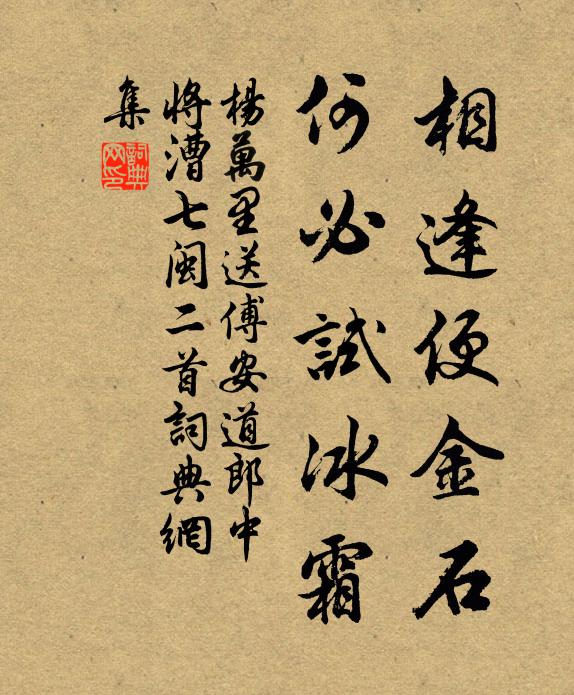 相逢便金石
何必試冰霜
楊萬里送傅安道郎中
將漕七閩二首詞典網
集
詞典網印